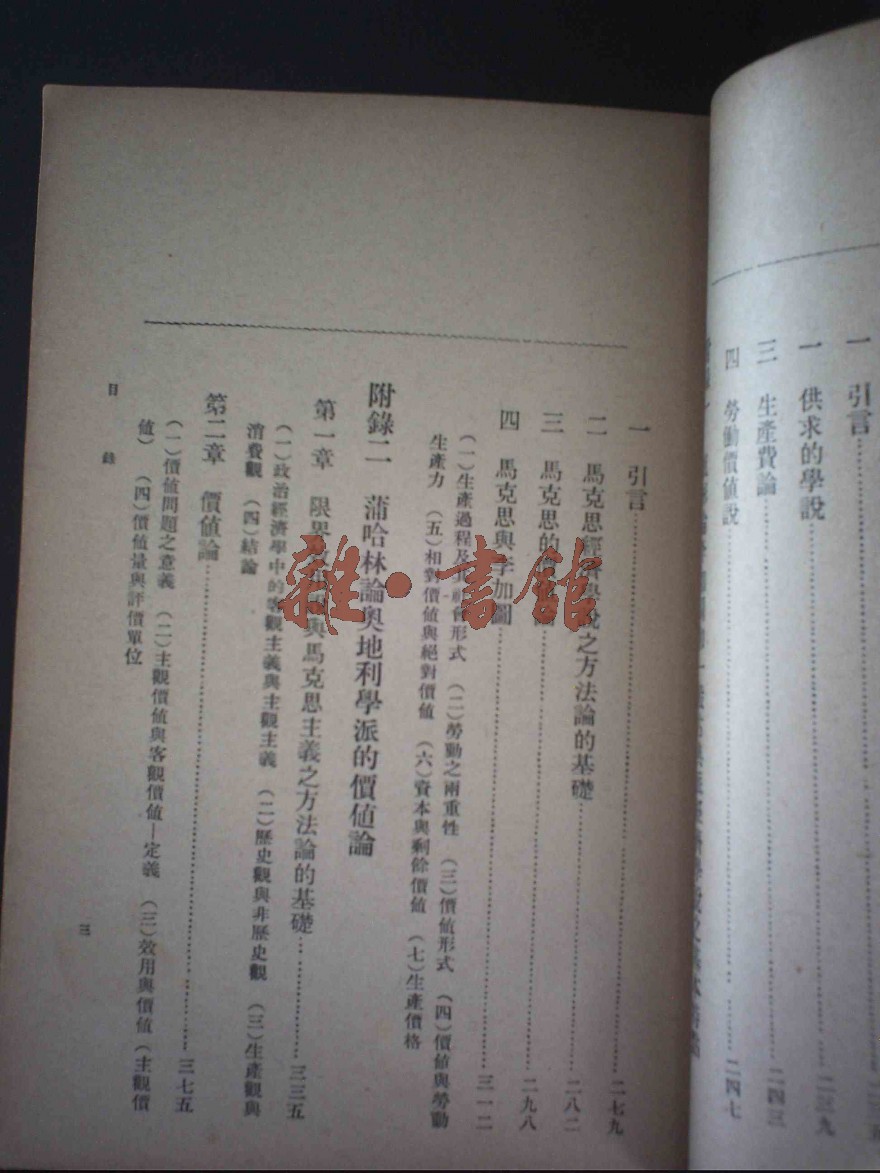 一 引言
一 供求的學說 二三九
三 生產費論 二四三
四 勞働價值說 二四七
一 引言 二七九
二 馬克思經濟學說之方法論的基礎 二八二
三 馬克思的 二九八
四 馬克思與李加圖 三一二
(一)生產過程及其社會形式 (二)勞動之兩重性 (三)價值形式 (四)價值與勞動
生產力 (五)相對價值與絕對價值 (六)資本與剩餘價值 (七)生產價格
附錄二 蒲哈林論奧地利學派的價值論
第一章 限界效用與馬克思主義之方法論的基礎 三三五
(一)政治經濟學中的客觀主義與主觀主義 (二)歷史觀與非歷史觀 (三)生產觀與
消費觀 (四)結論
第二章 價值論 三七五
(一)價值問題之意義 (二)主觀價值與客觀價值—定義 (三)效用與價值(主觀價
值) (四)價值量與評價單位
目錄
三
雜·書館